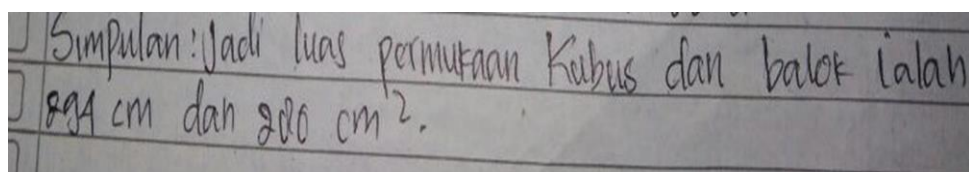 Simpulan: Jadi luas permukaan Kubus dan balok ialah
294 cm dan 280 cm².